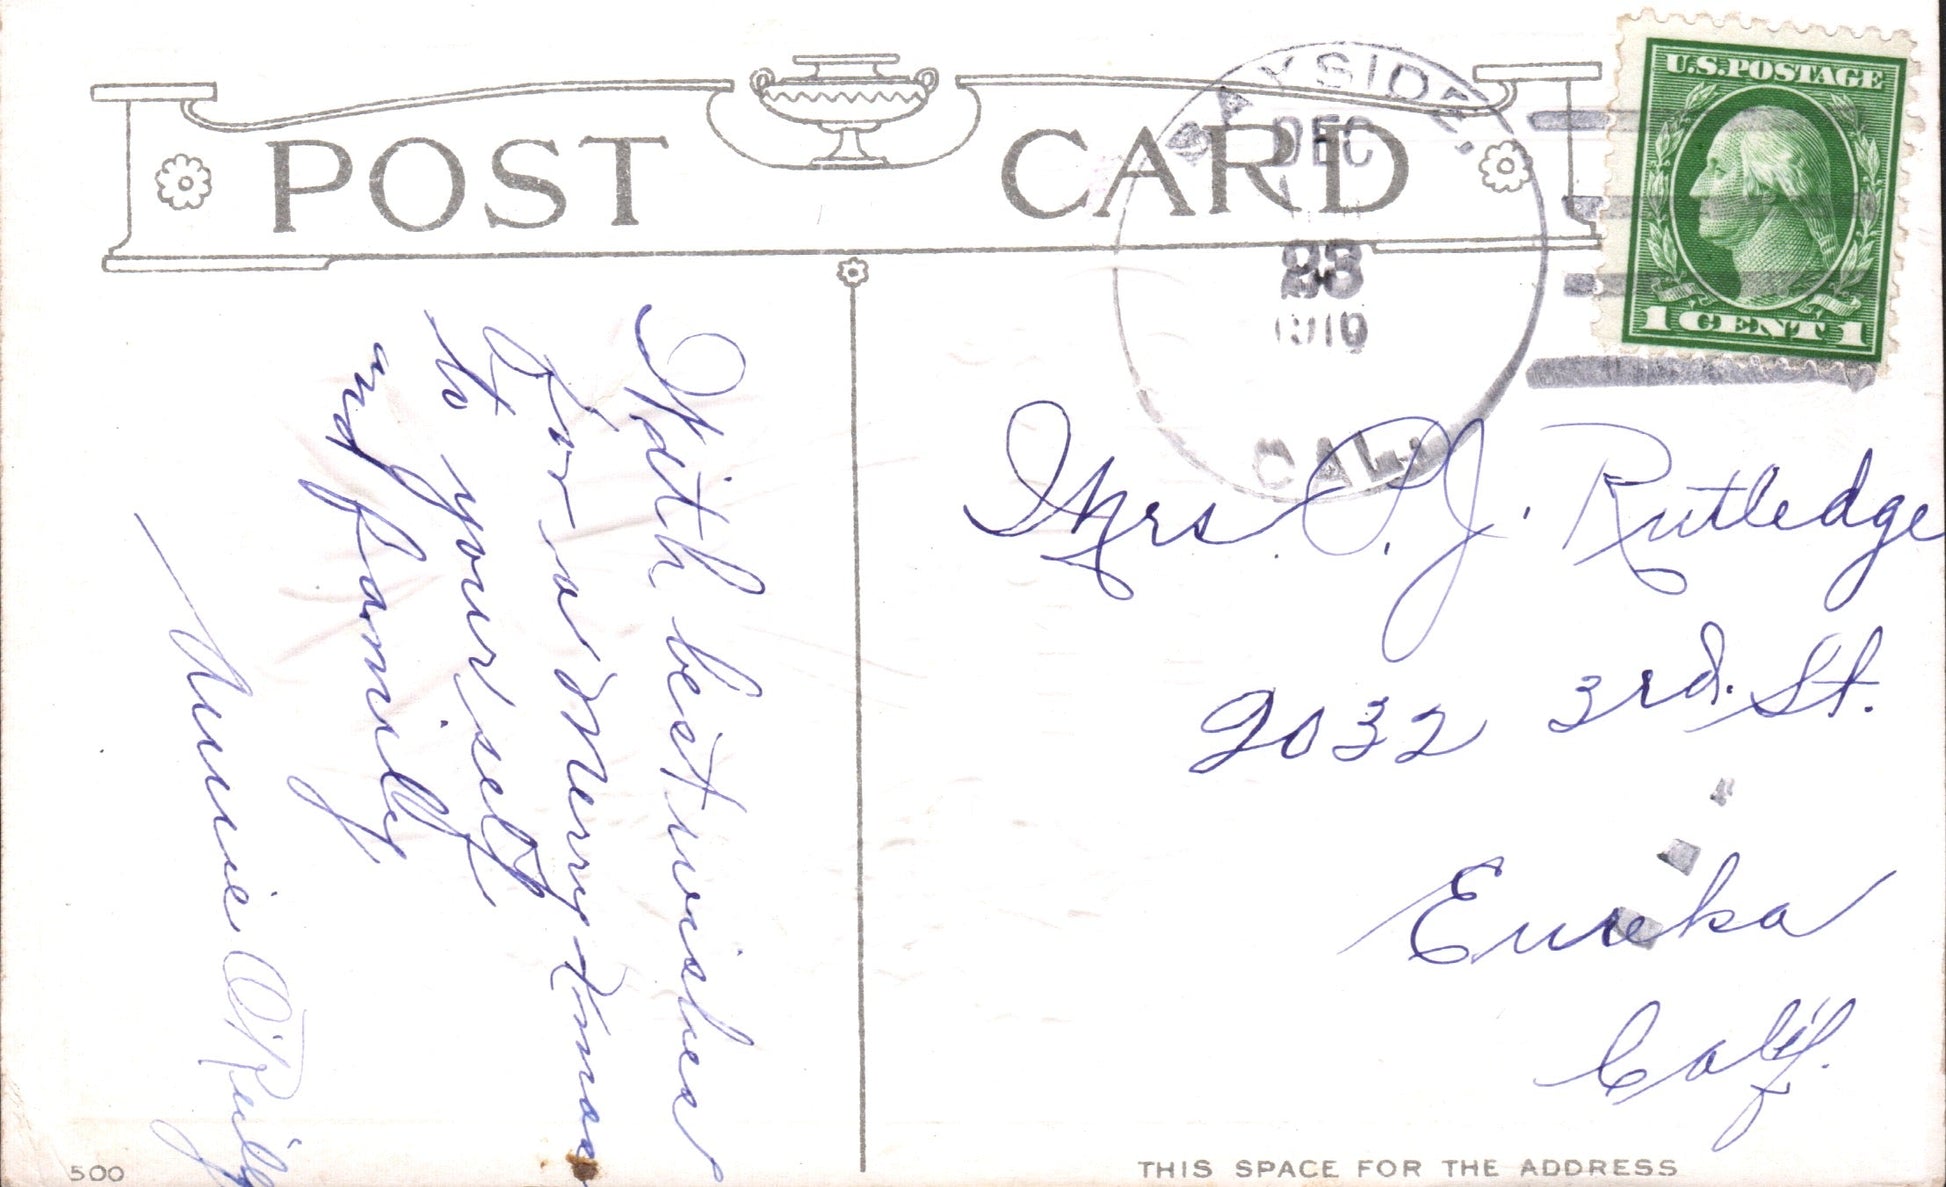 POST CARD
BAYSIDE,
DEC
23
CAL.
U.S. POSTAGE
1 CENT 1
With best wishes
For a Merry Xmas
to your self
and family
Minnie O'Reilly
Mrs. P. J. Rutledge
2032 3rd. St.
Eureka
Calif.
500
THIS SPACE FOR THE ADDRESS